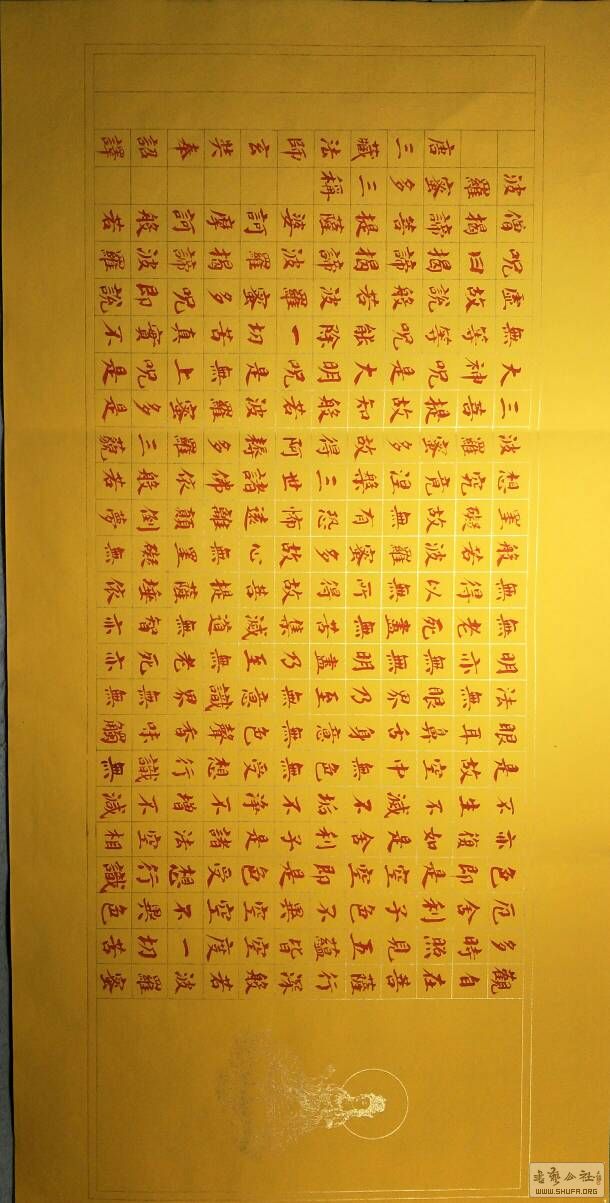 觀自在菩薩行深般若波羅蜜
多時照見五蘊皆空度一切苦
厄舍利子色不異空空不異色
色即是空空即是色受想行識
亦復如是舍利子是諸法空相
不生不滅不垢不淨不增不減
是故空中無色無受想行識無
眼耳鼻舌身意無色聲香味觸
法無眼界乃至無意識界無無
明亦無無明盡乃至無老死亦
無老死盡無苦集滅道無智亦
無得以無所得故菩提薩埵依
般若波羅蜜多故心無罣礙無
罣礙故無有恐怖遠離顛倒夢
想究竟涅槃三世諸佛依般若
波羅蜜多故得阿耨多羅三藐
三菩提故知般若波羅蜜多是
大神呪是大明呪是無上呪是
無等等呪能除一切苦真實不
虛故說般若波羅蜜多呪即說
呪曰揭諦揭諦波羅揭諦波羅
僧揭諦菩提薩婆訶摩訶般若
波羅蜜多三稱
唐三藏法師玄奘奉詔譯
WWW.SHUFA.ORG